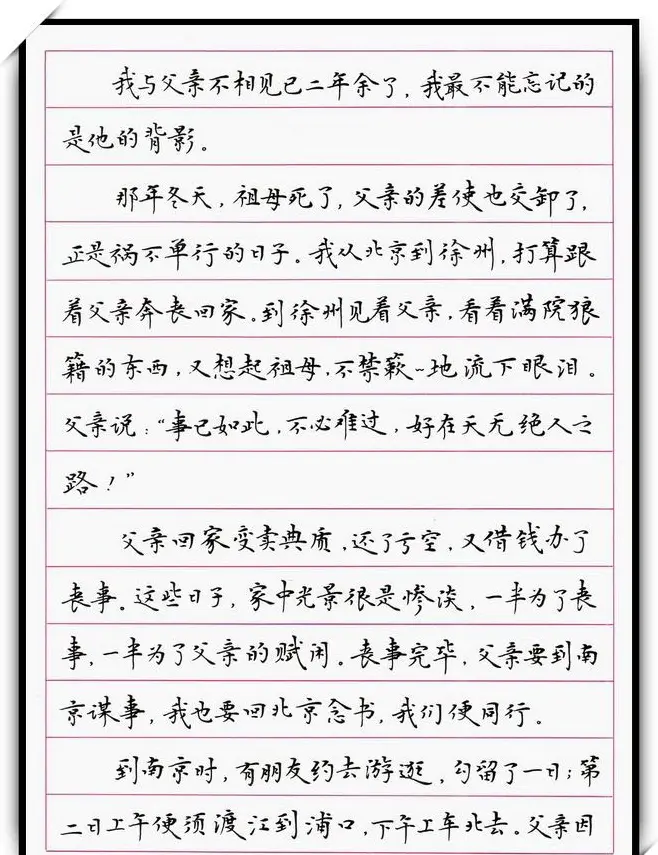 我与父亲不相见已二年余了，我最不能忘记的
是他的背影。
那年冬天，祖母死了，父亲的差使也交卸了，
正是祸不单行的日子。我从北京到徐州，打算跟
着父亲奔丧回家。到徐州见着父亲，看着满院狼
籍的东西，又想起祖母，不禁簌~地流下眼泪。
父亲说：“事已如此，不必难过，好在天无绝人之
路！”
父亲回家变卖典质，还了亏空，又借钱办了
丧事。这些日子，家中光景很是惨淡，一半为了丧
事，一半为了父亲的赋闲。丧事完毕，父亲要到南
京谋事，我也要回北京念书，我们便同行。
到南京时，有朋友约去游逛，勾留了一日；第
二日上午便须渡江到浦口，下午上车北去。父亲因